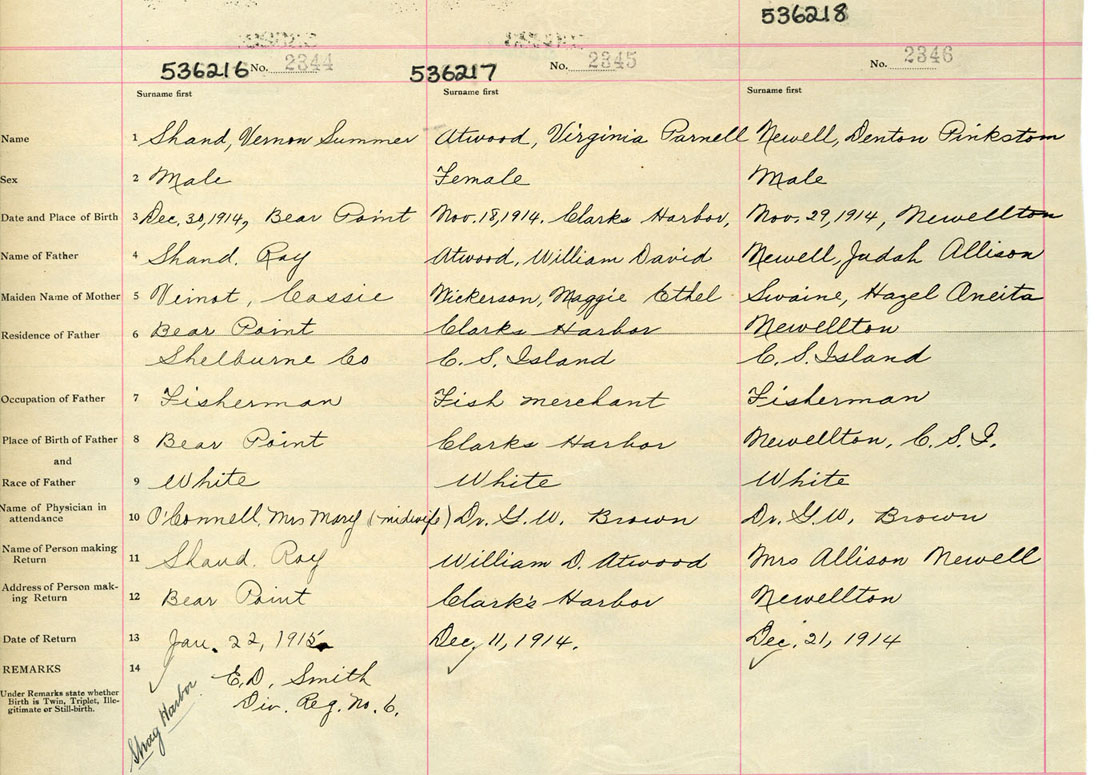 536218
536216 No. 2344 536217 No. 2345 No. 2346
Surname first Surname first Surname first
Name 1 Shand, Vernon Summer Atwood, Virginia Parnell Newell, Denton Pinkstom
Sex 2 Male Female Male
Date and Place of Birth 3 Dec. 30, 1914, Bear Point Nov. 18, 1914. Clarks Harbor, Nov. 29, 1914, Newellton
Name of Father 4 Shand. Ray Atwood, William David Newell, Judah Allison
Maiden Name of Mother 5 Veinot, Cassie Nickerson, Maggie Ethel Swaine, Hazel Aneita
Residence of Father 6 Bear Point Clarks Harbor Newellton
Shelburne Co C. S. Island C. S. Island
Occupation of Father 7 Fisherman Fish merchant Fisherman
Place of Birth of Father 8 Bear Point Clarks Harbor Newellton, C. S. I.
and
Race of Father 9 White White White
Name of Physician in
attendance 10 O'Connell, Mrs Mary (midwife) Dr. G. W. Brown Dr. G. W. Brown
Name of Person making
Return 11 Shand. Ray William D. Atwood Mrs Allison Newell
Address of Person mak-
ing Return 12 Bear Point Clark's Harbor Newellton
Date of Return 13 Jan. 22, 1915. Dec. 11, 1914. Dec. 21, 1914
REMARKS 14 E. D. Smith
Under Remarks state whether
Birth is Twin, Triplet, Ille-
gitimate or Still-birth.
Div. Reg. No. 6.
Shag Harbor